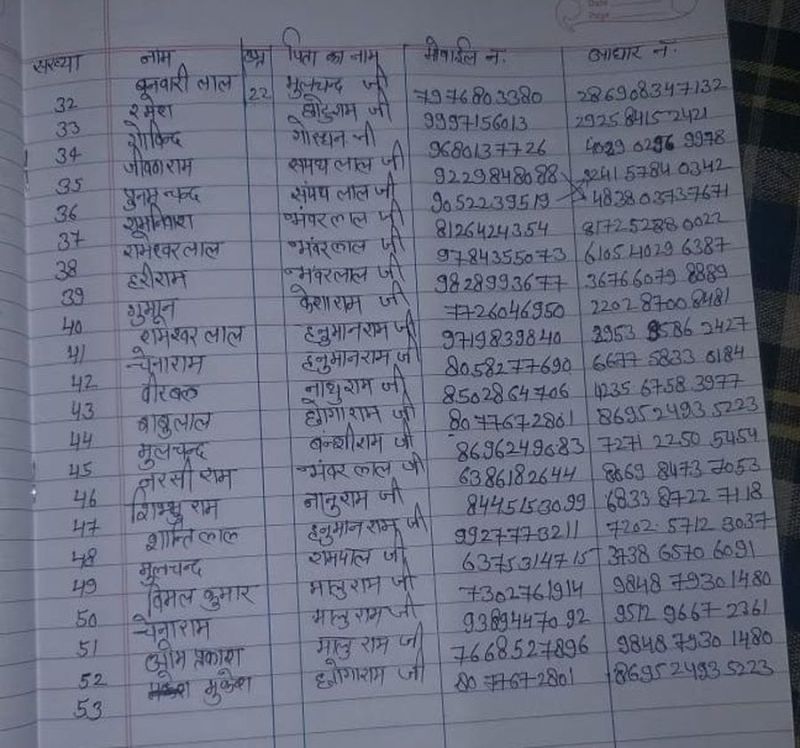 संख्या नाम उम्र पिता का नाम मोबाईल न. आधार न.
32 बनवारी लाल 22 मुलचन्द जी 7976803380 286908347132
33 रमेश छोटुराम जी 9997156013 2925 8415 2421
34 गोविन्द गोरधन जी 9680137726 4029 0296 9978
35 जीवणराम सम्पथ लाल जी 9229848088 9241 5784 0342
36 पुनम चन्द संपथ लाल जी 9052239519 482803737671
37 भंवरलाल जी 8126424354 817252880022
38 रामेश्वरलाल भंवरलाल जी 9784355073 6105 4029 6387
39 हरीराम भंवरलाल जी 9828993677 3676 6079 8889
40 केशाराम जी 7726046950 2202 8700 8481
41 रामेश्वर लाल हनुमानराम जी 9719839840 3953 8586 2427
42 चेनाराम हनुमानराम जी 8058277690 6677 5833 0184
43 वीरबल नाथुराम जी 8502864706 4235 6758 3977
44 बाबुलाल छोगाराम जी 8077672801 8695 2493 5223
45 मुलचन्द बंन्शीराम जी 8696249683 7271 2250 5454
46 नरसी राम भंवर लाल जी 6386182644 8669 8473 7053
47 शिम्भु राम नानुराम जी 8445153099 6833 8722 7118
48 शान्ति लाल हनुमान राम जी 9927773211 7202 5712 3037
49 मुलचन्द रामपाल जी 6375314715 3738 6570 6091
50 विमल कुमार मालुराम जी 7302761914 9848 7930 1480
51 चेनाराम मालुराम जी 9389447092 9512 9667 2361
52 ओम प्रकाश मालु राम जी 7668527896 9848 7930 1480
53 मुकेश छोगाराम जी 8077672801 8695 2493 5223